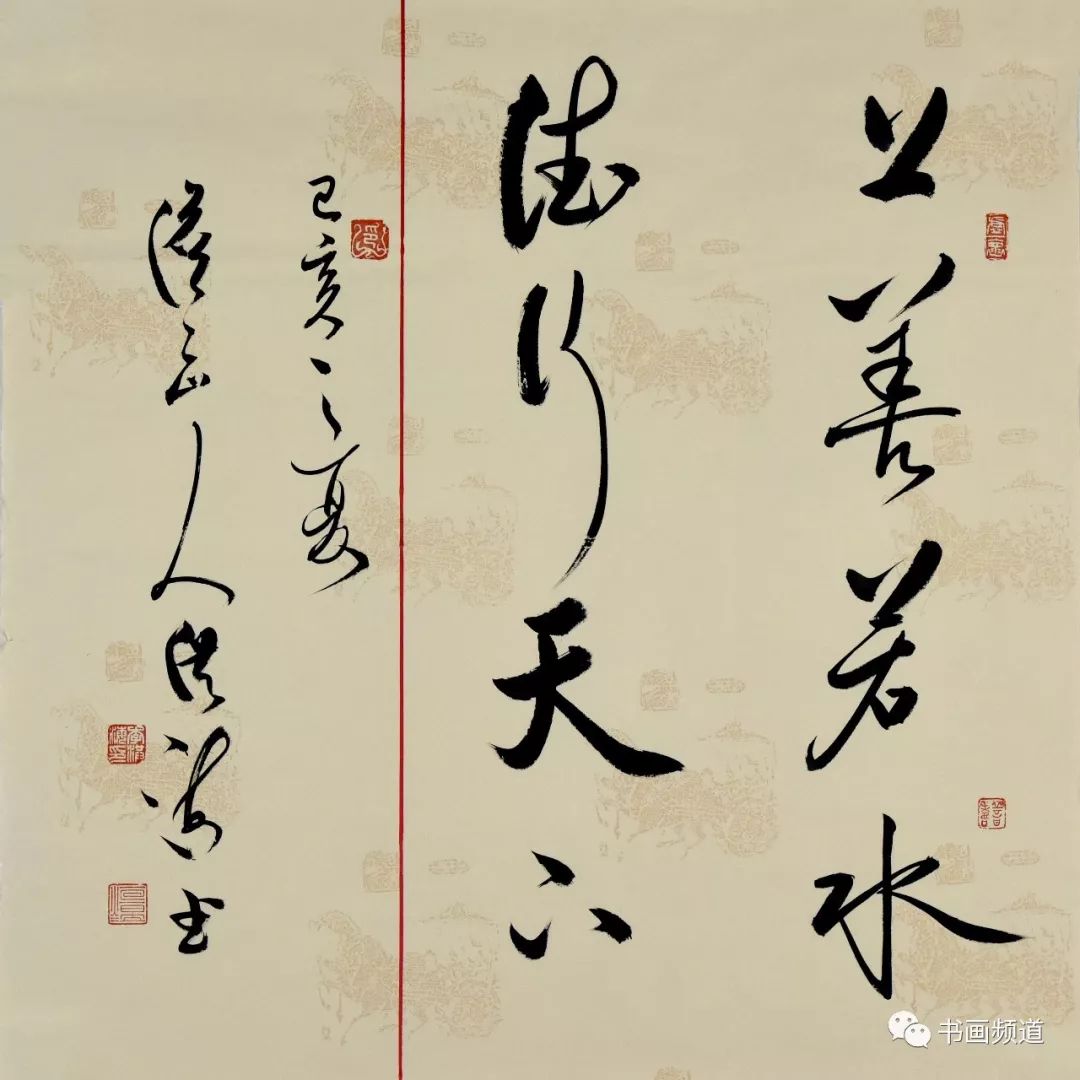 上善若水
德行天下
己亥之夏
山人
书
书画频道